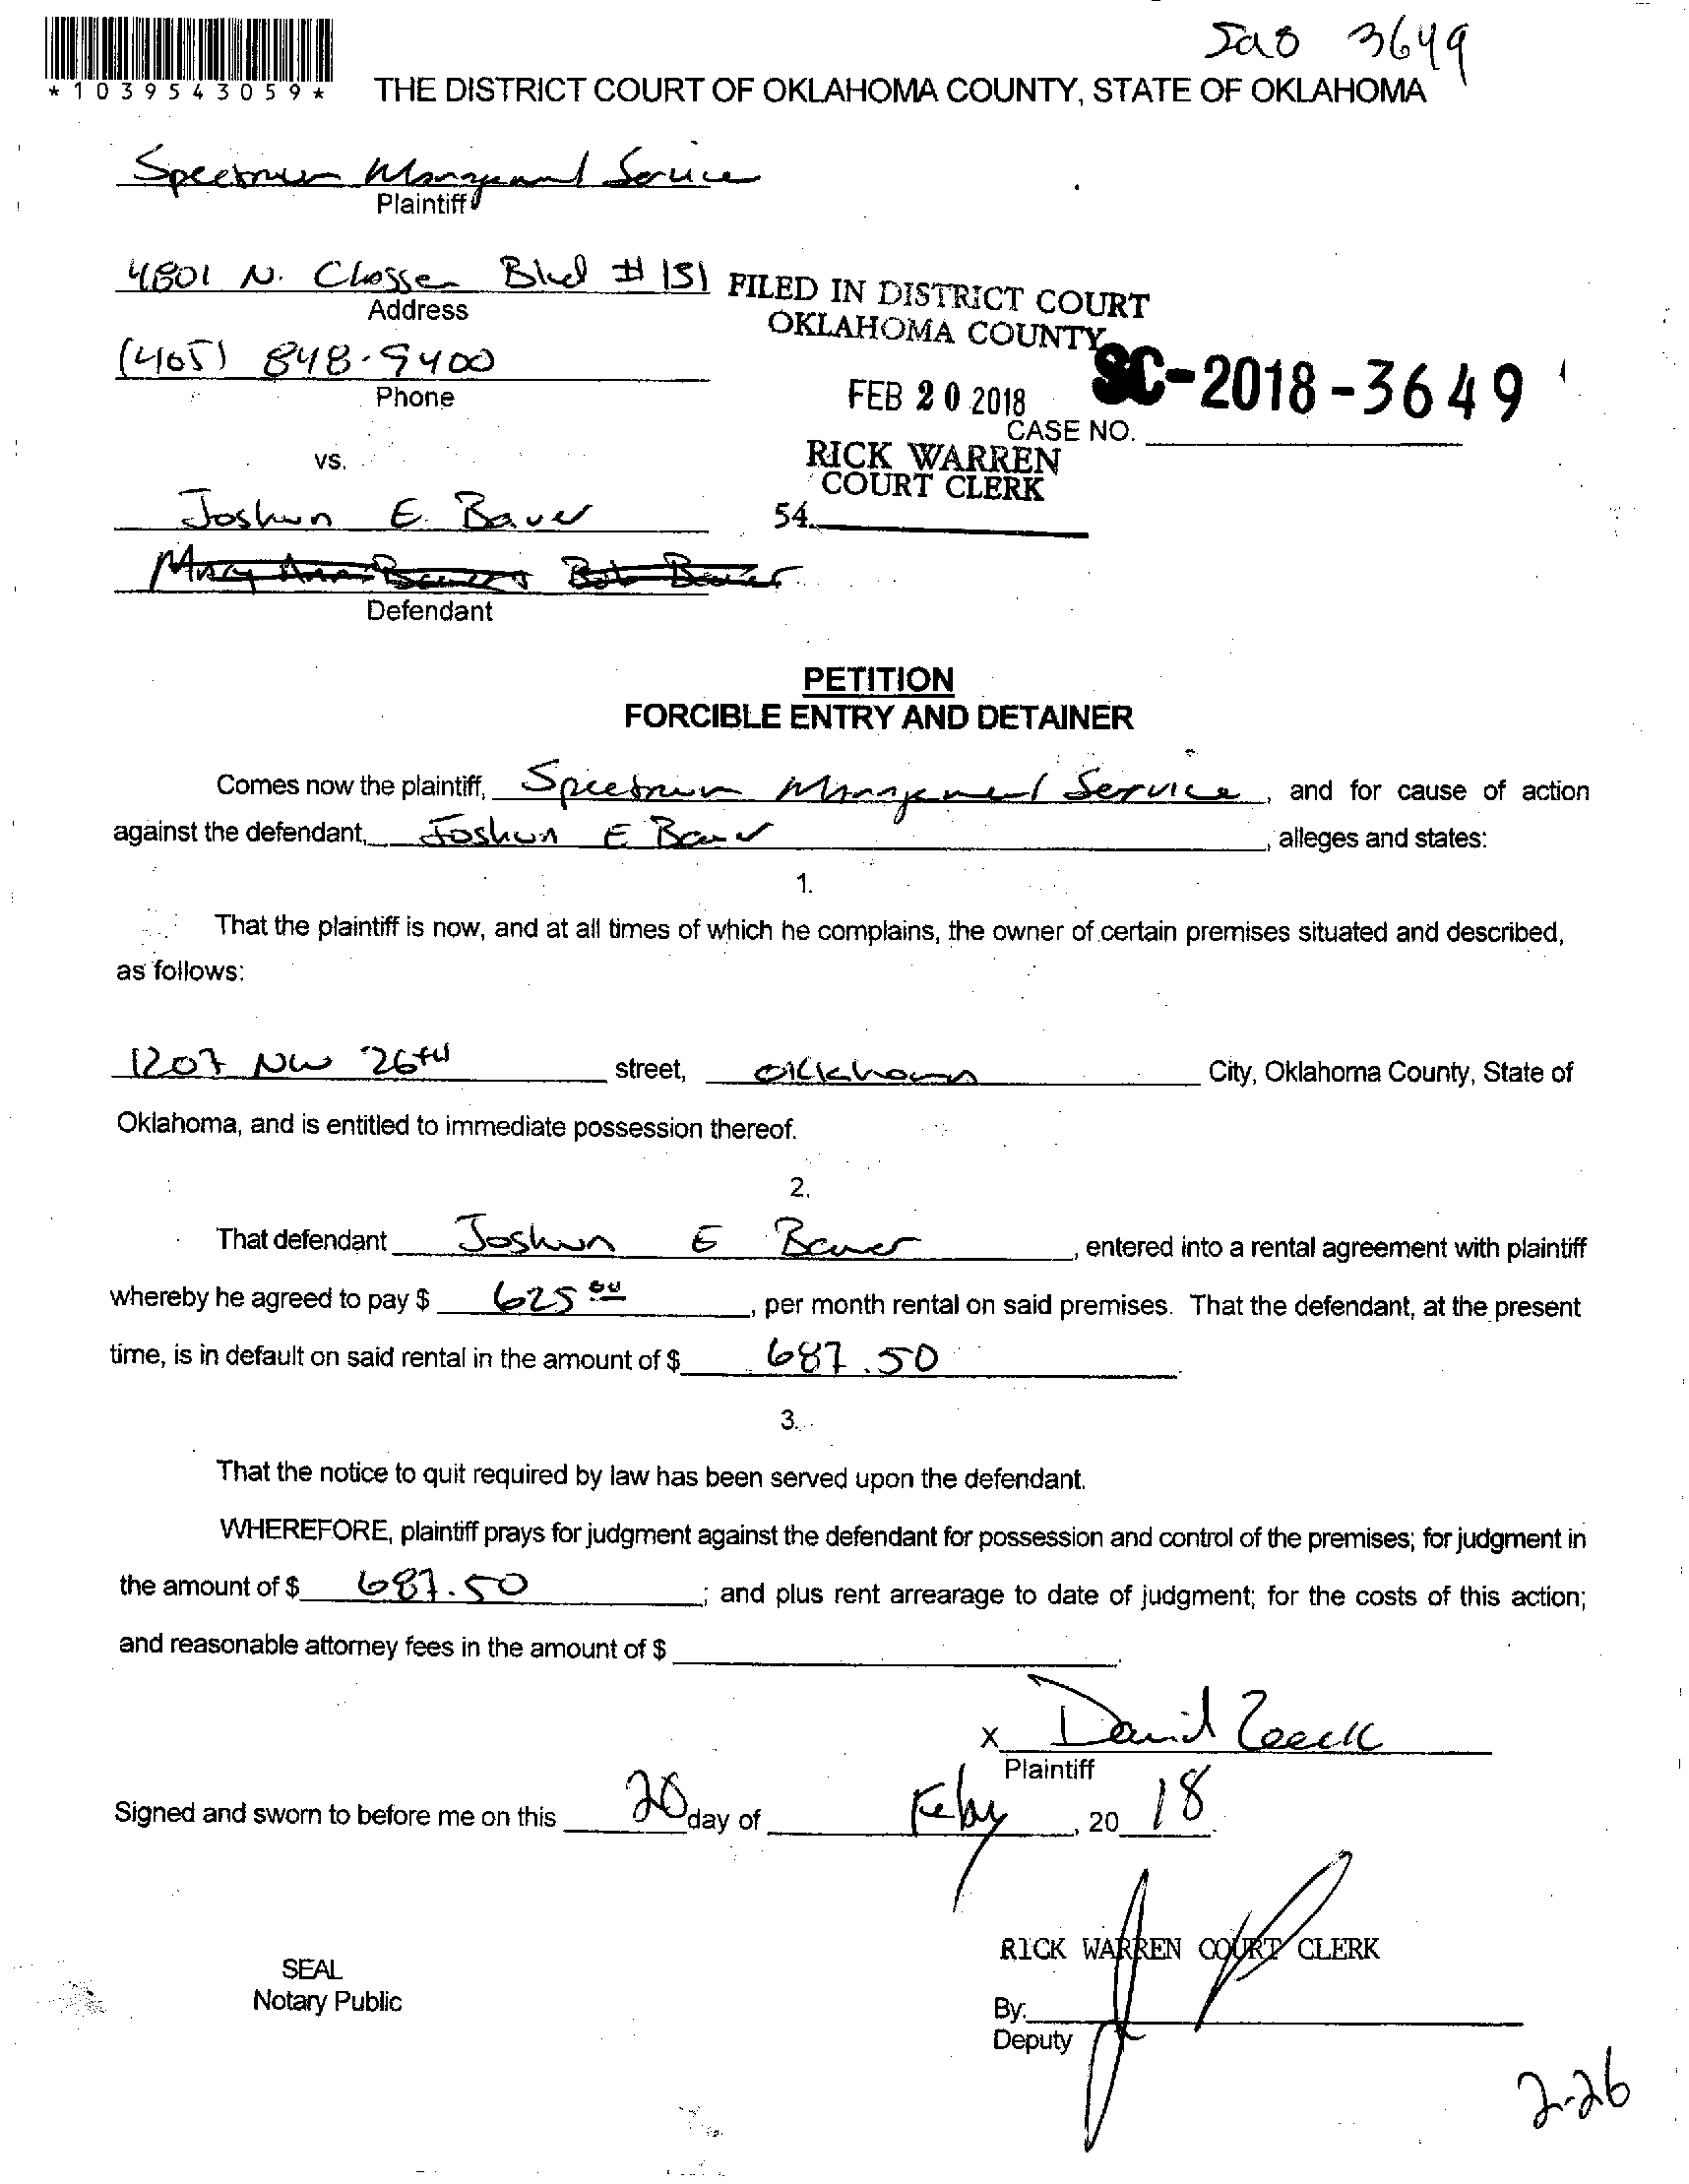 3649
*1039543059*
THE DISTRICT COURT OF OKLAHOMA COUNTY, STATE OF OKLAHOMA
Spectrum Management Service
Plaintiff
4801 N. Classen Blvd # 151
Address
(405) 848-9400
Phone
FILED IN DISTRICT COURT
OKLAHOMA COUNTY
FEB 20 2018
SC-2018-3649
CASE NO.
RICK WARREN
COURT CLERK
54.
vs.
Joshua E. Bauer
Defendant
PETITION
FORCIBLE ENTRY AND DETAINER
Comes now the plaintiff, Spectrum Management Service, and for cause of action
against the defendant, Joshua E Bauer, alleges and states:
1.
That the plaintiff is now, and at all times of which he complains, the owner of certain premises situated and described,
as follows:
1207 NW 26th street, Oklahoma City, Oklahoma County, State of
Oklahoma, and is entitled to immediate possession thereof.
2.
That defendant Joshua E Bauer, entered into a rental agreement with plaintiff
whereby he agreed to pay $ 625.00, per month rental on said premises. That the defendant, at the present
time, is in default on said rental in the amount of $ 687.50.
3.
That the notice to quit required by law has been served upon the defendant.
WHEREFORE, plaintiff prays for judgment against the defendant for possession and control of the premises; for judgment in
the amount of $ 687.50; and plus rent arrearage to date of judgment; for the costs of this action;
and reasonable attorney fees in the amount of $
X David
Plaintiff
Signed and sworn to before me on this 20 day of Feby, 20 18.
RICK WARREN COURT CLERK
SEAL
Notary Public
By:
Deputy
2-26